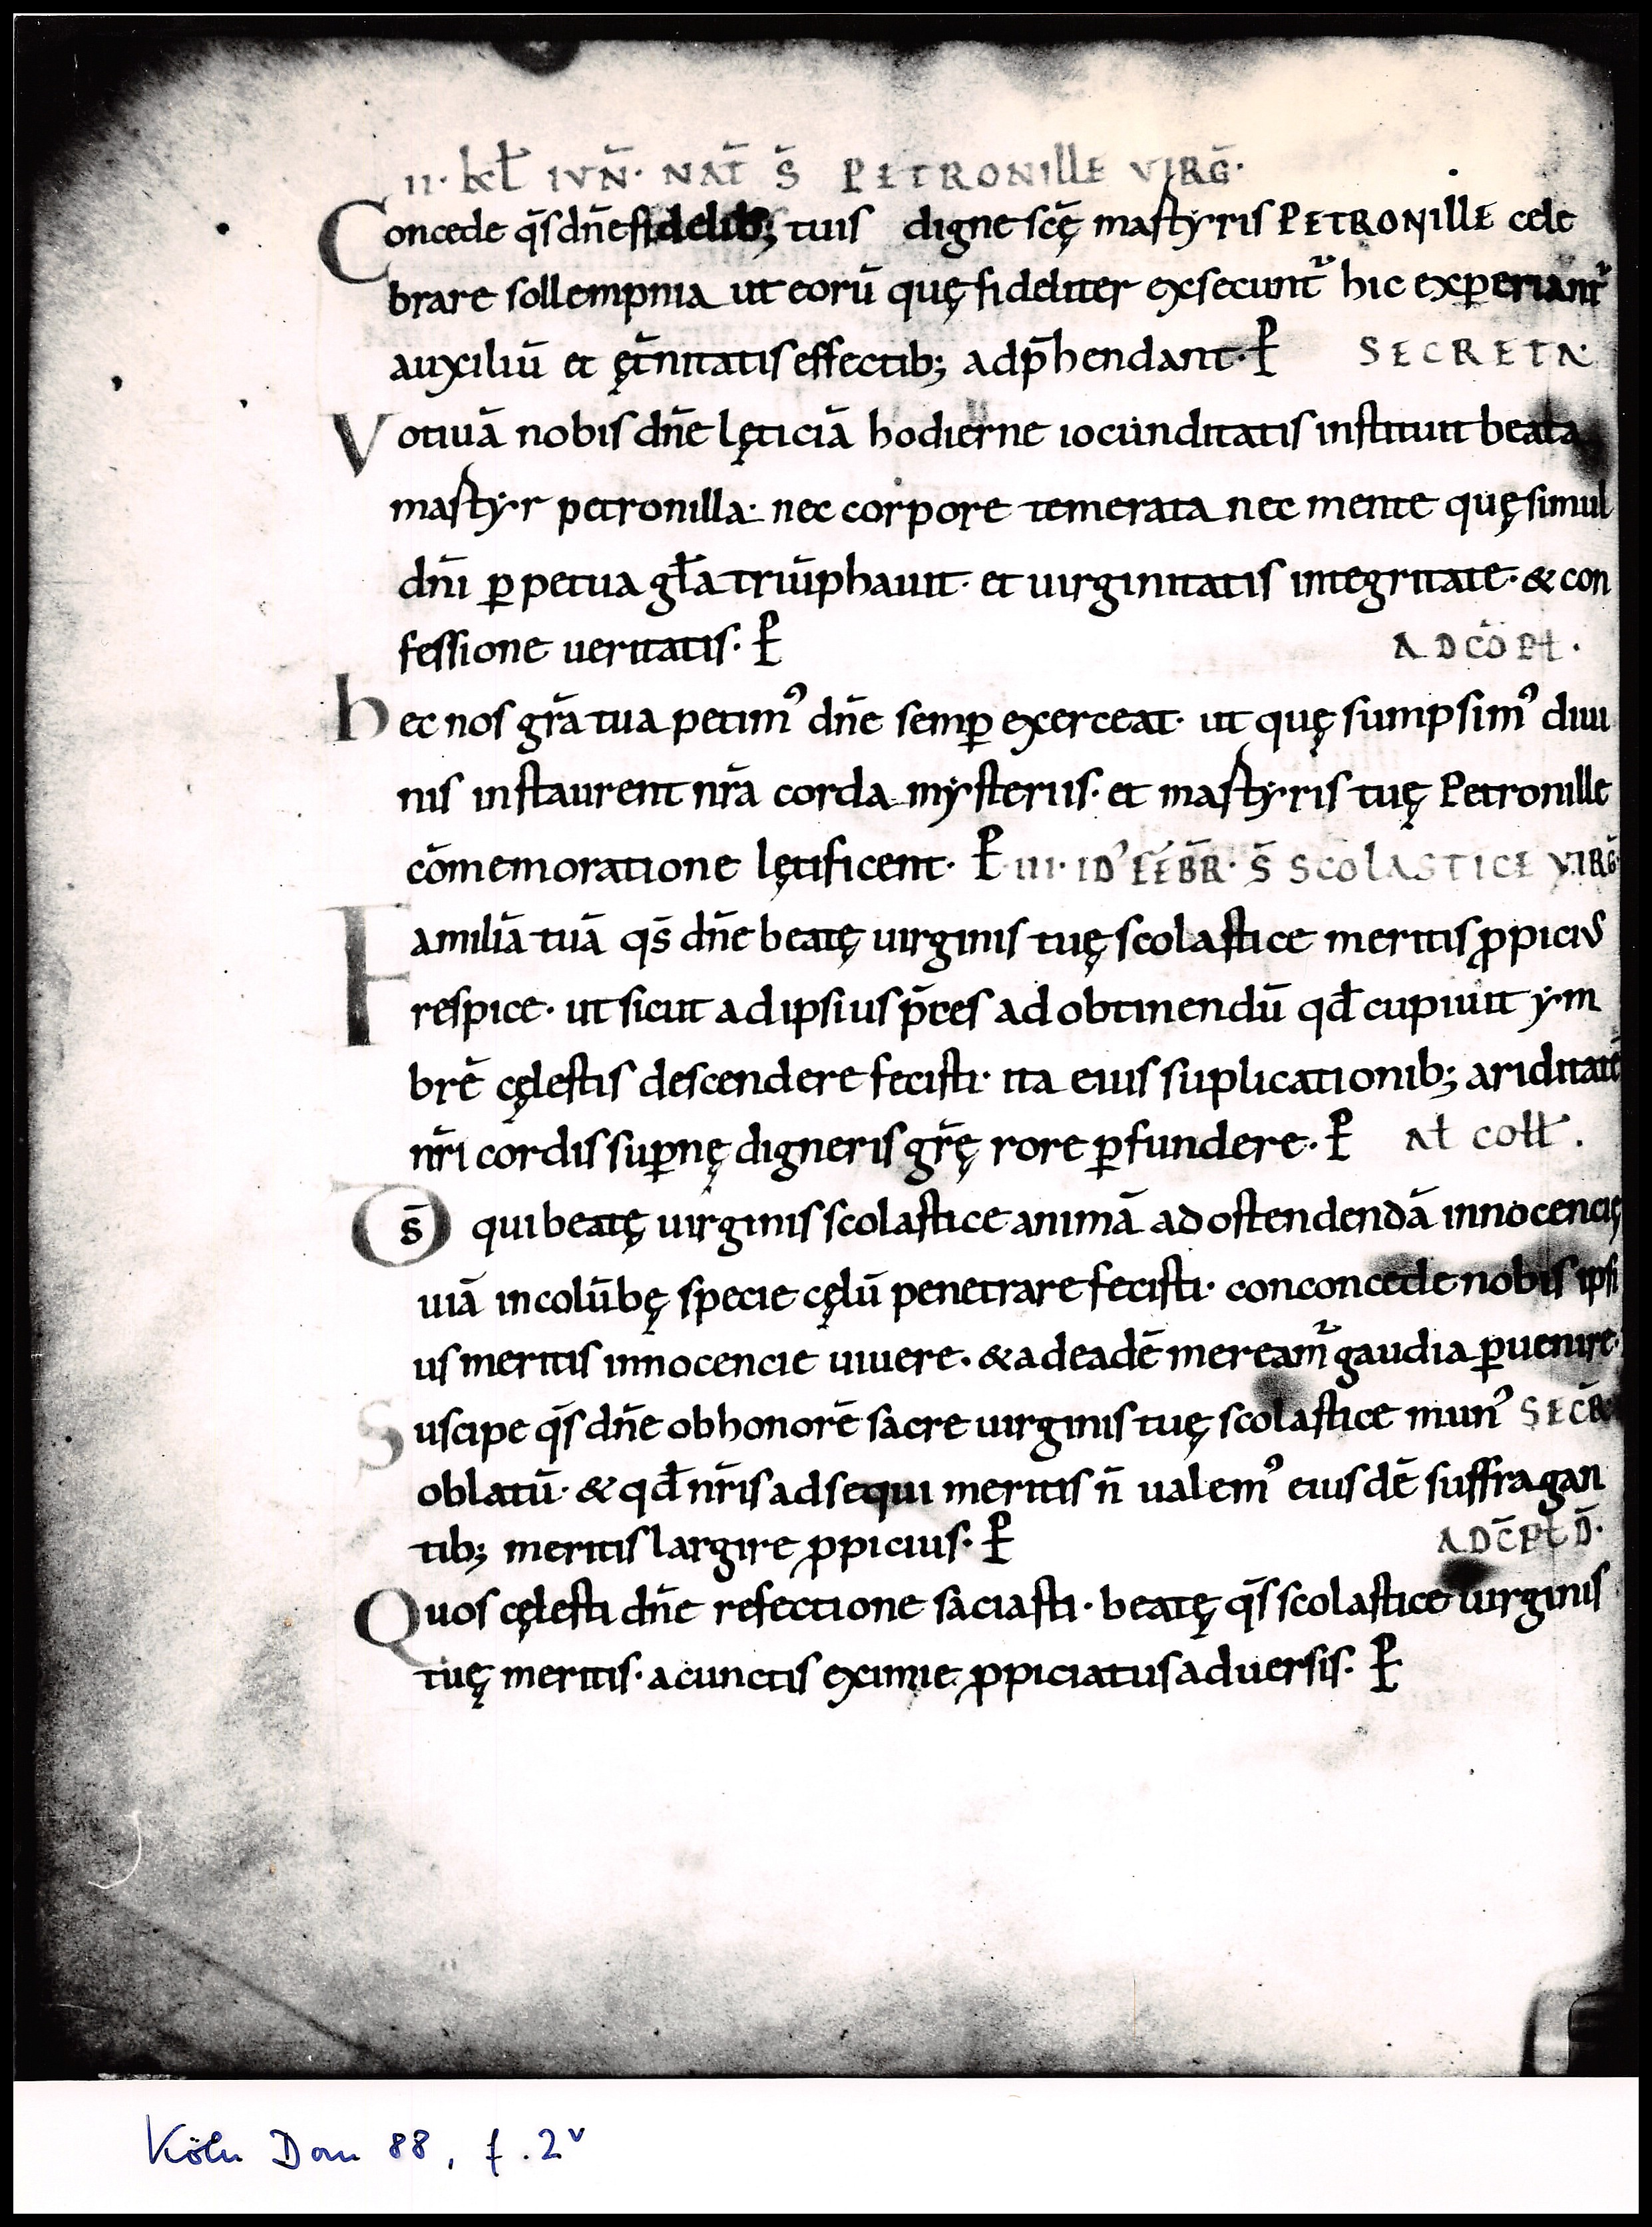 II · KL̄ IVN̄ · NAT̄ S̄ PETRONILLE VIRḠ ·
Concede q̄s dn̄e fidelib; tuis digne scę̄ martyris PETRONILLE cele
brare sollempnia ut eorū quę fideliter exsecunt᷑ hic experiant᷑
auxiliū et ęt̄nitatis effectib; adp̄hendant · P SECRETA ·
Votiuā nobis dn̄e lęticiā hodierne iocunditatis instituit beata
martyr petronilla · nec corpore temerata nec mente quę simul
dn̄i ꝑpetua gl̄a triūphauit · et uirginitatis integritate · & con
fessione ueritatis · P AD CŌPL̄ ·
hec nos gr̄a tua petimꝰ dn̄e semꝑ exerceat · ut quę sumpsimꝰ diui
nis instaurent nr̄a corda mysteriis · et martyris tuę Petronille
cōmemoratione lętificent · P III · IDꝰ FEBR̄ · S̄ SCOLASTICE VIRḠ
Familiā tuā qs̄ dn̄e beatę uirginis tuę scolastice meritis ꝓpicius
respice · ut sicut ad ipsius p̄ces ad obtinendū qd̄ cupiuit ym
brē cęlestis descendere fecisti · ita eius suplicationib; ariditatē
nr̄i cordis suꝑnę digneris gr̄ę rore ꝑfundere · P AL̄ COLL̄ ·
Ds̄ qui beatę uirginis scolastice animā ad ostendendā innocencię
uiā in colūbę specie cęlū penetrare fecisti · conconcede nobis ipsi
us meritis innocencie uiuere · & ad eadē meream᷑ gaudia ꝑuenire ·
Suscipe q̄s dn̄e ob honorē sacre uirginis tuę scolastice munꝰ SECR̄
oblatū · & qd̄ nr̄is adsequi meritis n̄ ualemꝰ eiusdē suffragan
tib; meritis largire ꝓpicius · P AD C̄PL̄D̄ ·
Quos cęlesti dn̄e refectione saciasti · beatę q̄s scolastice uirginis
tuę meritis · a cunctis eximie ꝓpiciatus aduersis · P
Köln Dom 88, f. 2v